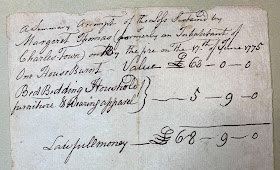 A Summary Accompt of the Loss Sustaind by
Margaret Thomas (formerly an Inhabitant of
Charles Town) by the fire on the 17th of June 1775
One House Burnt - Value £ 63-0-0
Bed Bedding Household
furniture & Wearing apparel } - 5-9-0
Lawfull money - £ 68-9-0